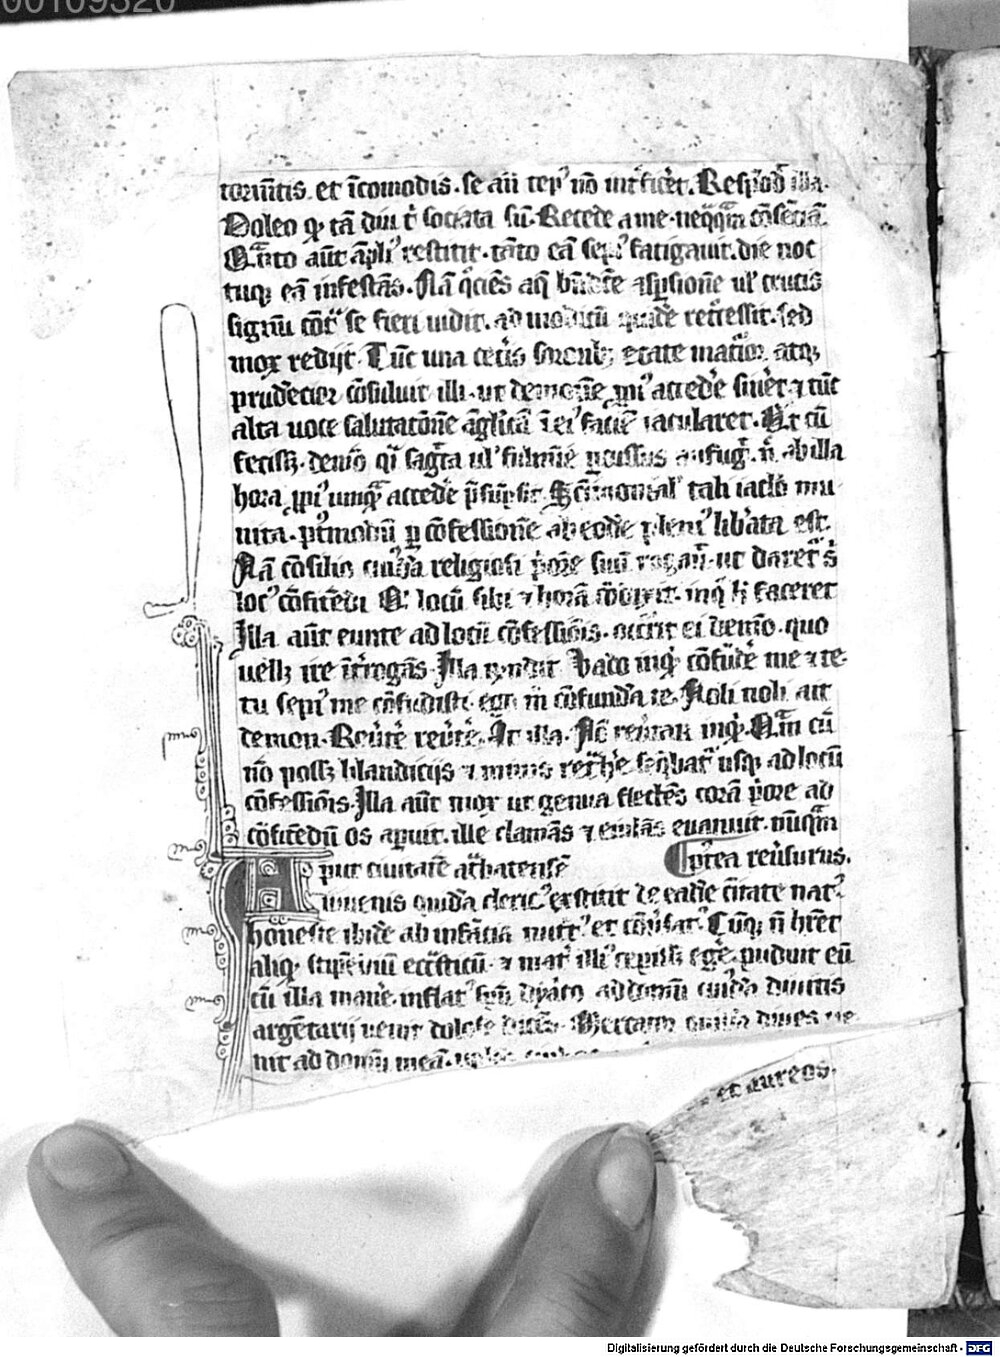 00109320
torm̄tis et īcomodis. se aū ten⁹ nō int̓ficēt. Respōd illa.
Doleo qꝫ tā diu t̄ sociata sū. Recede a me. neqq̄m cōsēciā.
Quāto aūt āpli⁹ restitit. tāto eā sepi⁹ fatigauit. die noc
tuqꝫ eā infestās. Nā q̄ciēs aq̄ bn̄dc̄e aspsione ul̓ crucis
signū cōt̄ se fieri uidit. ad modicū quidē rec̄essit. sed
mox redijt. Tūc una cet̓is sororibꝫ etate mat̓ior atqꝫ
prudēcior cōsuluit illi. ut demonē ꝓpi⁹ accedēre sin̓et ⁊ tūc
alta uoce salutatōnē āgl̓icā ī ei⁹ faciē iacularet. Q̄t cū
fecissꝫ. demō q̄i sagīta ul̓ fulmīe ꝑcussus aufug̓. n̄ ab illa
hora ꝓpi⁹ unqᷓ accede p̄sūpsit. Scīmonial̓ tali iaclo mu
nita. ptmodū ꝑ cōfessionē ab eodē pleni⁹ lib̓ata est.
Nā cōsilio cui⁹dā religiosi p̓ore suū rogauit. ut daret̓ s̓
loc⁹ cōfitēdi. Q̄ locū sibi ⁊ horā cōdixit. inq̄ h̓ faceret
Illa aūt eunte ad locū cōfessiōis. occ̓rit ei demō. quo
uellꝫ ire īt̓rogās. Illa rn̄dit. Vado inq̄t cōfūde̓ me ⁊ te.
tu sepi⁹ me cōfudisti. ego m̄ cōfundā te. Noli noli ait
demon. Reūte̓ reūte̓. At illa. Nō reūtar inq̄t. Quam cū
nō possꝫ blandicijs ⁊ minis ret̓he̓. seq̄bat̓ usqꝫ ad locū
cōfessiōis. Illa aūt mox ut genua flectēs corā p̓ore ad
cōfitendū os apuit. ille clamās ⁊ eiulās euanuit. nūqᷓm
Aput ciuitatē at̓batensē postea reūsurus.
iuuenis quidā cleric⁹ extitit de eadē ciuitate nat⁹
honeste ibidē ab infācia nutr̓ et cōūsat⁹. Cūqꝫ n̄ hr̄et
aliqꝫ stipēdiū eccl̓sticū. ⁊ mat̓ illi⁹ cepissꝫ ege̓. puduit eū
cū illa mane̓. inflat⁹ spū dyab̓o ad domū cui⁹dā diuitis
argētarij uenit dolose dicēs. Mercator quidā diues ue
nit ad domū meā. uolēs
et aureos.
Digitalisierung gefördert durch die Deutsche Forschungsgemeinschaft - DFG